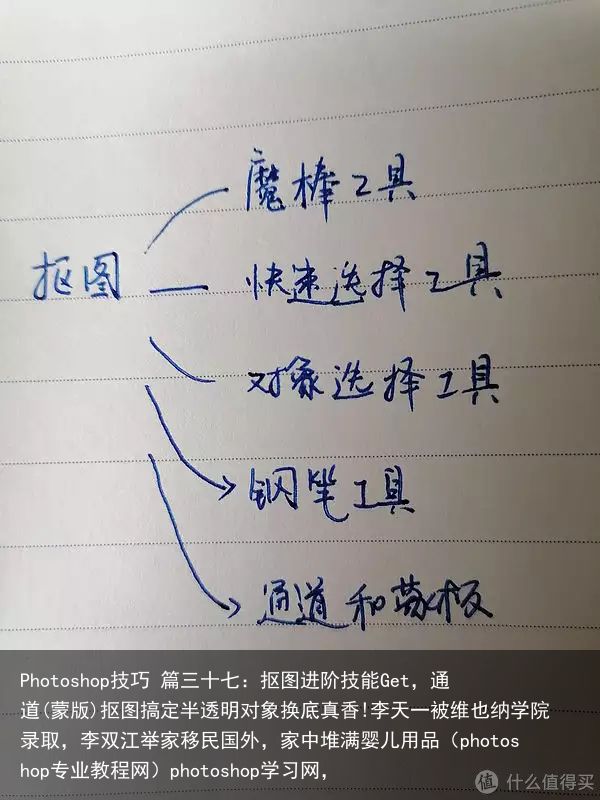 魔棒工具
抠图
快速选择工具
对象选择工具
钢笔工具
通道和蒙板
Photoshop技巧 篇三十七：抠图进阶技能Get，通
道(蒙版)抠图搞定半透明对象换底真香!李天一被维也纳学院
录取，李双江举家移民国外，家中堆满婴儿用品（photos
hop专业教程网）photoshop学习网，
值 什么值得买